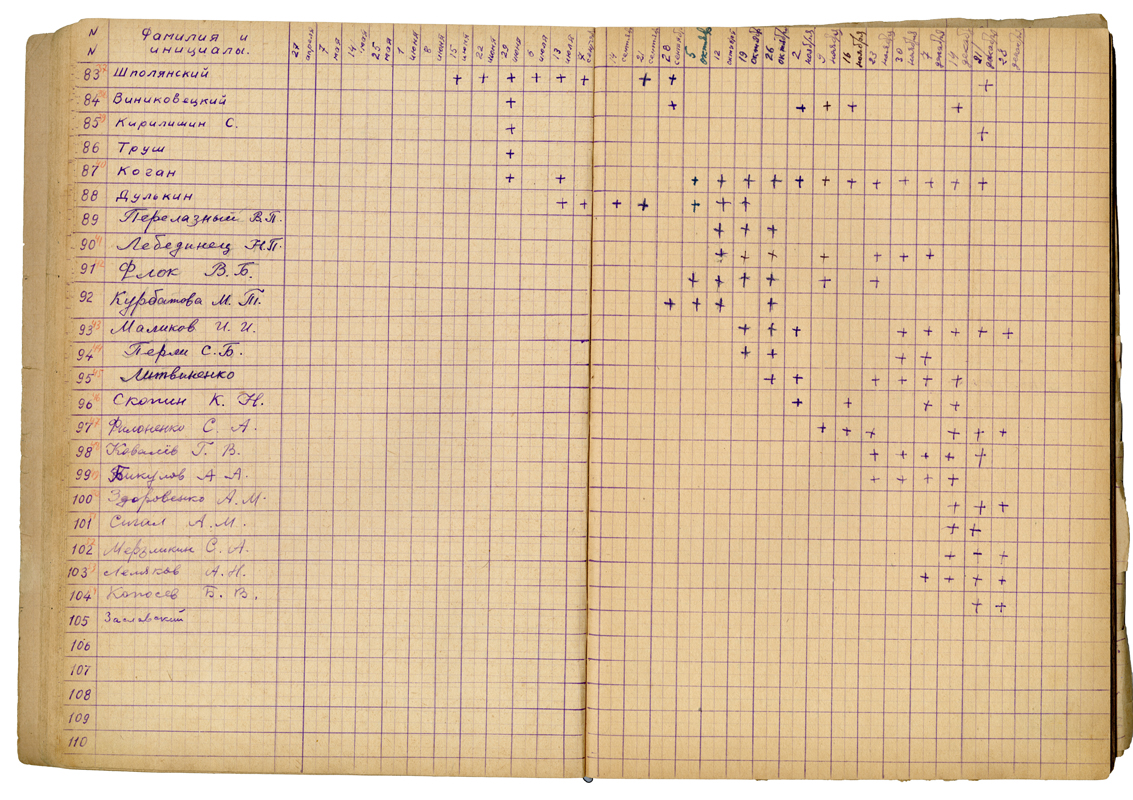 N Фамилия и
N инициалы.
27 апреля 7 мая 14 мая 25 мая 1 июня 8 июня 15 июня 22 июня 29 июня 6 июля 13 июля 7 14 сентяб 21 сентяб 28 сентяб 5 октябр 12 октября 19 октября 26 октября 2 ноября 9 ноября 16 ноября 23 ноября 30 ноября 7 декабря 19 декабр 21 декабр 28 декабр
83 Шполянский + + + + + + + + +
84 Виниковецкий + + + + + +
85 Кирилишин С. + +
86 Труш +
87 Коган + + + + + + + + + + + + + +
88 Дулькин + + + + + + +
89 Перелазный В.П. + + +
90 Лебединец Н.П. + + + + + + +
91 Флок В.Б. + + + + + +
92 Курбатова М. Т. + + + +
93 Маликов И. И. + + + + + + + +
94 Перли С.Б. + + + +
95 Литвиненко + + + + + +
96 Скопин К. Н. + + + +
97 Филоненко С. А. + + + + + +
98 Ковалёв Г. В. + + + + +
99 Бикулов А А. + + + +
100 Здоровенко А.М. + + +
101 Сигал А.М. + +
102 С. А. + + +
103 Леляков А.Н. + + + +
104 Копосев Б. В. + +
105 Заславский
106
107
108
109
110